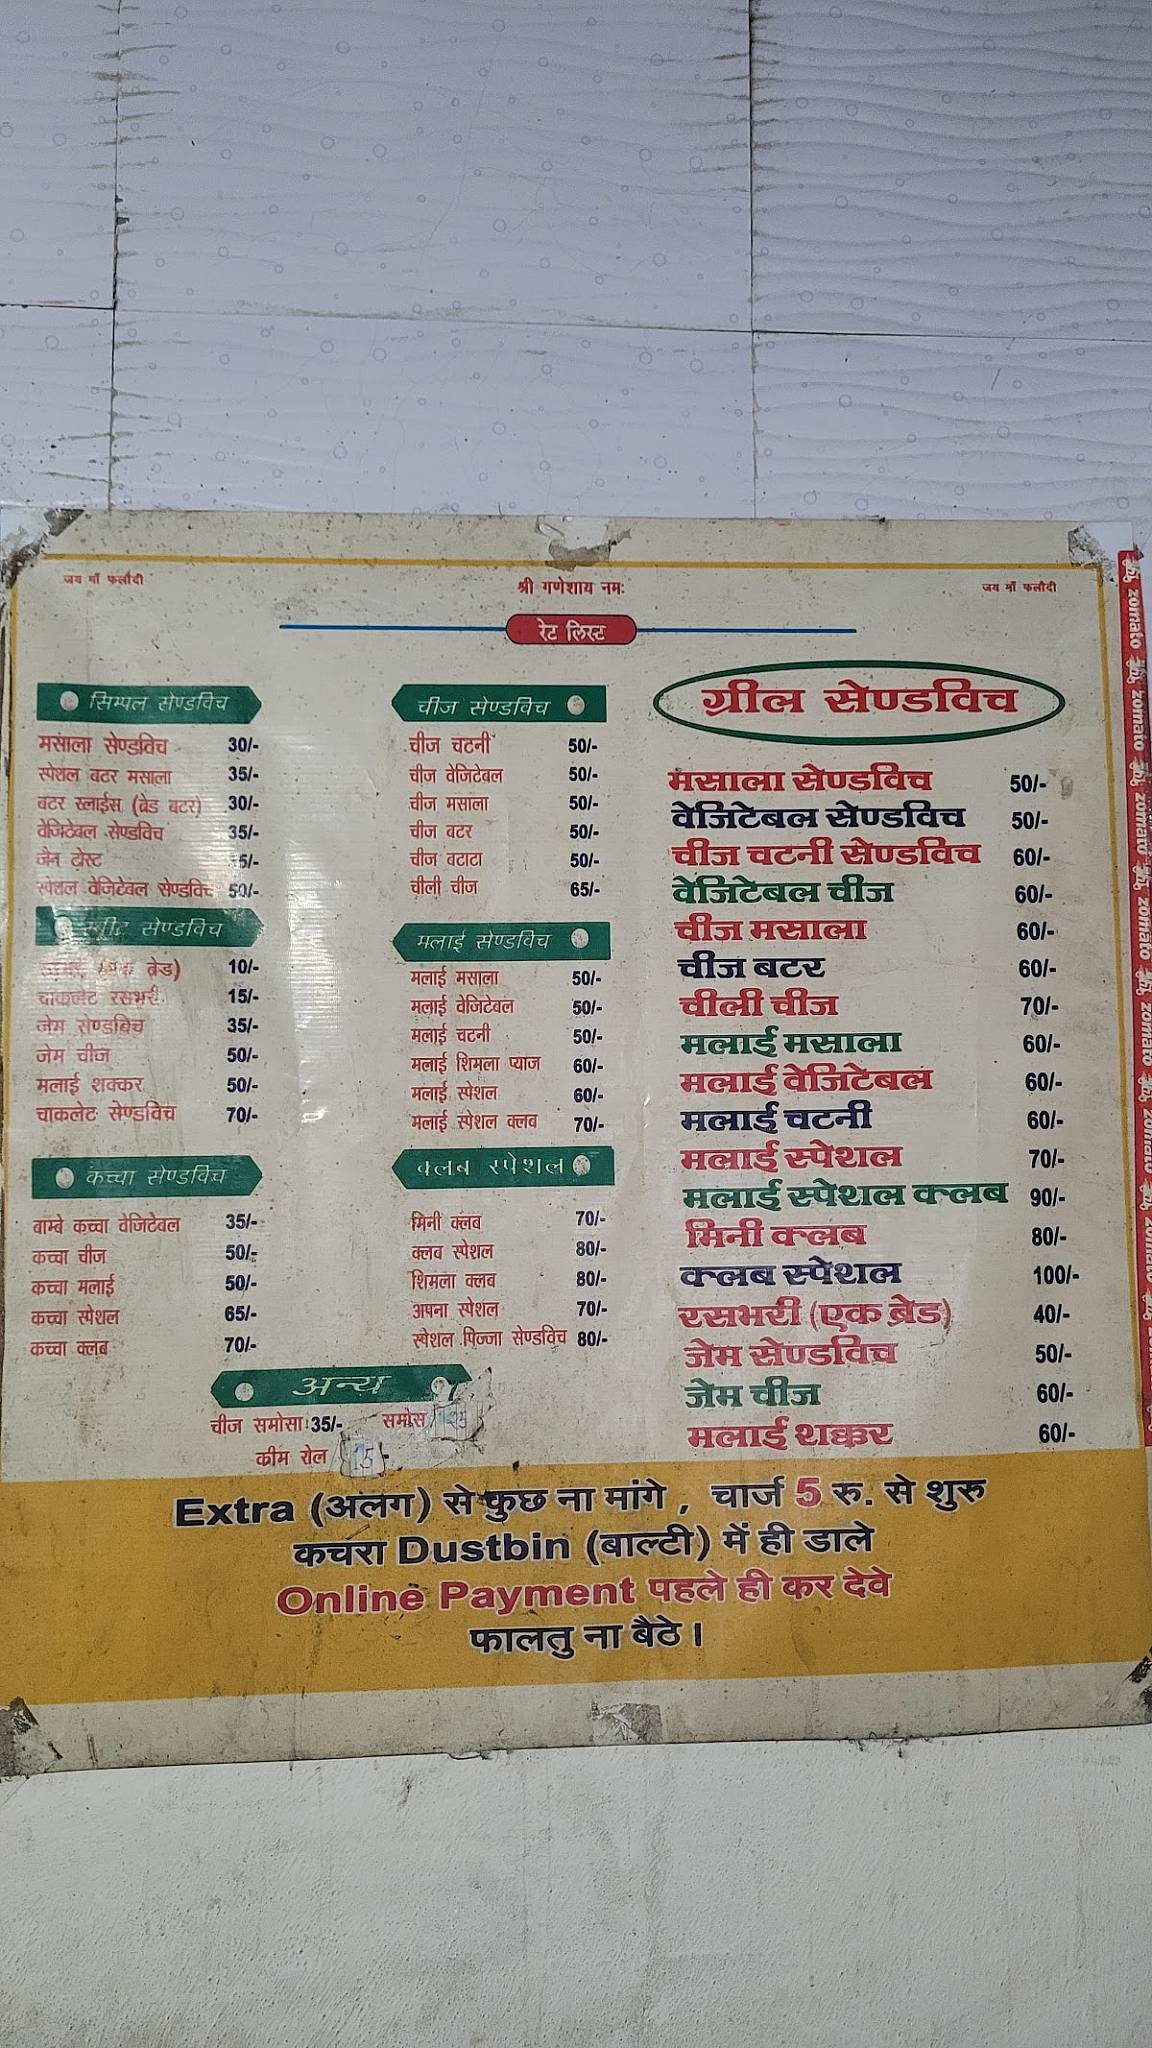 जय माँ फलौदी
श्री गणेशाय नमः
जय माँ फलौदी
रेट लिस्ट
सिम्पल सेण्डविच
मसाला सेण्डविच 30/-
स्पेशल बटर मसाला 35/-
बटर स्लाईस (ब्रेड बटर) 30/-
वेजिटेबल सेण्डविच 35/-
जैन टोस्ट
स्पेशल वेजिटेबल सेण्डविच 50/-
सेण्डविच
ब्रेड) 10/-
चाकलेट रसभरी 15/-
जेम सेण्डविच 35/-
जेम चीज 50/-
मलाई शक्कर 50/-
चाकलेट सेण्डविच 70/-
कच्चा सेण्डविच
बाम्बे कच्चा वेजिटेबल 35/-
कच्चा चीज 50/-
कच्चा मलाई 50/-
कच्चा स्पेशल 65/-
कच्चा क्लब 70/-
चीज सेण्डविच
चीज चटनी 50/-
चीज वेजिटेबल 50/-
चीज मसाला 50/-
चीज बटर 50/-
चीज बटाटा 50/-
चीली चीज 65/-
मलाई सेण्डविच
मलाई मसाला 50/-
मलाई वेजिटेबल 50/-
मलाई चटनी 50/-
मलाई शिमला प्याज 60/-
मलाई स्पेशल 60/-
मलाई स्पेशल क्लब 70/-
क्लब स्पेशल
मिनी क्लब 70/-
क्लब स्पेशल 80/-
शिमला क्लब 80/-
अपना स्पेशल 70/-
स्पेशल पिज्जा सेण्डविच 80/-
अन्य
चीज समोसा 35/- समोस
कीम रोल 15/-
ग्रील सेण्डविच
मसाला सेण्डविच 50/-
वेजिटेबल सेण्डविच 50/-
चीज चटनी सेण्डविच 60/-
वेजिटेबल चीज 60/-
चीज मसाला 60/-
चीज बटर 60/-
चीली चीज 70/-
मलाई मसाला 60/-
मलाई वेजिटेबल 60/-
मलाई चटनी 60/-
मलाई स्पेशल 70/-
मलाई स्पेशल क्लब 90/-
मिनी क्लब 80/-
क्लब स्पेशल 100/-
रसभरी (एक ब्रेड) 40/-
जेम सेण्डविच 50/-
जेम चीज 60/-
मलाई शक्कर 60/-
Extra (अलग) से कुछ ना मांगे , चार्ज 5 रु. से शुरु
कचरा Dustbin (बाल्टी) में ही डाले
Online Payment पहले ही कर देवे
फालतु ना बैठे।
zomato zomato zomato zomato zomato zomato